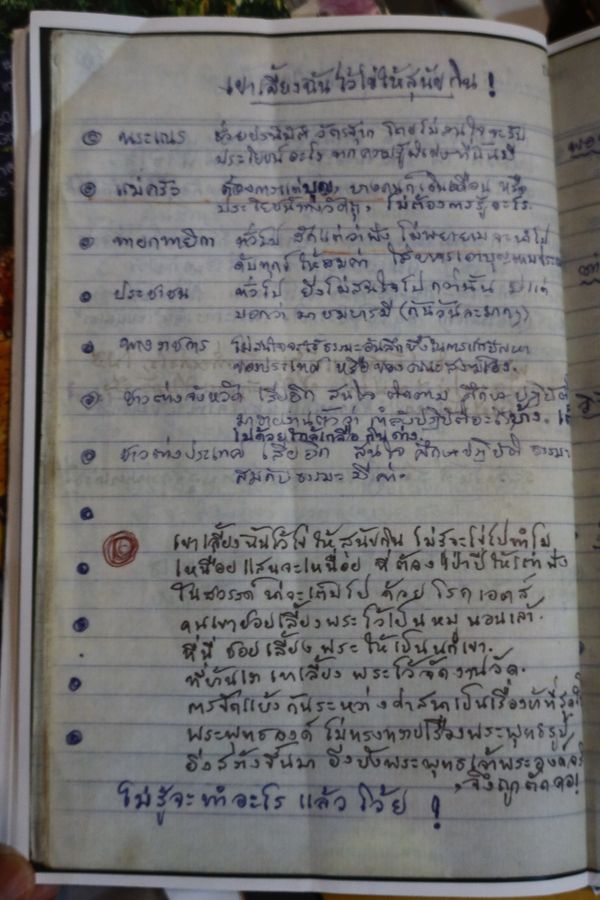 เขาเลี้ยงฉันไว้ไข่ให้สุนัขกิน!
พระเณร ช่วยปรนนิบัติ โดยไม่สนใจจะรับ
ประโยชน์อะไร จากความรู้พิเศษที่ฉันมี
แม่ครัว ต้องการแต่บุญ, บางคนก็เงินเดือน หรือ
ประโยชน์ทางวัตถุ, ไม่ต้องการรู้อะไร.
ทายกทายิกา ทั่วไป สักแต่ว่าฟัง ไม่พยายามจะนำไป
ดับทุกข์ ให้สมค่า
ประชาชน ทั่วไป ยิ่งไม่สนใจไปกว่านั้น
บอกว่า มาชมบารมี (กันวันละมากๆ)
ทางราชการ ไม่สนใจจะใช้ธรรมะอันลึกซึ้งในการแก้ปัญหา
ของประเทศ หรือของคณะสงฆ์เอง.
ชาวต่างจังหวัด เสียอีก สนใจ ติดตาม ศึกษา ปฏิบัติ
มารายงานตัวว่า กำลังปฏิบัติอะไรบ้าง.
ไม่ด้วยใกล้เกลือกินด่าง.
ชาวต่างประเทศ เสียอีก สนใจ ศึกษาปฏิบัติ ธรรมะ
สมกับธรรมะมีค่า.
เขาเลี้ยงฉันไว้ไข่ให้สุนัขกิน ไม่รู้จะไข่ไปทำไม
เหนื่อยแสนจะเหนื่อย ที่ต้องเป่าปี่ให้เต่าฟัง
ในสวรรค์ น่าจะเต็มไป ด้วย โรคเอดส์
คนเขาชอบเลี้ยงพระ ไว้เป็นหมู นอนเล้า.
ที่นี่ ชอบเลี้ยง พระ ให้เป็นนกเขา.
ที่อื่น เขาเลี้ยง พระไว้จัดงานวัด.
การขัดแย้งกันระหว่างศาสนาเป็นเรื่องที่
พระพุทธองค์ ไม่ทรงทราบเรื่องพระพุทธรูป,
จึงถูกตัดคอ!
ไม่รู้จะทำอะไร แล้วโว้ย!